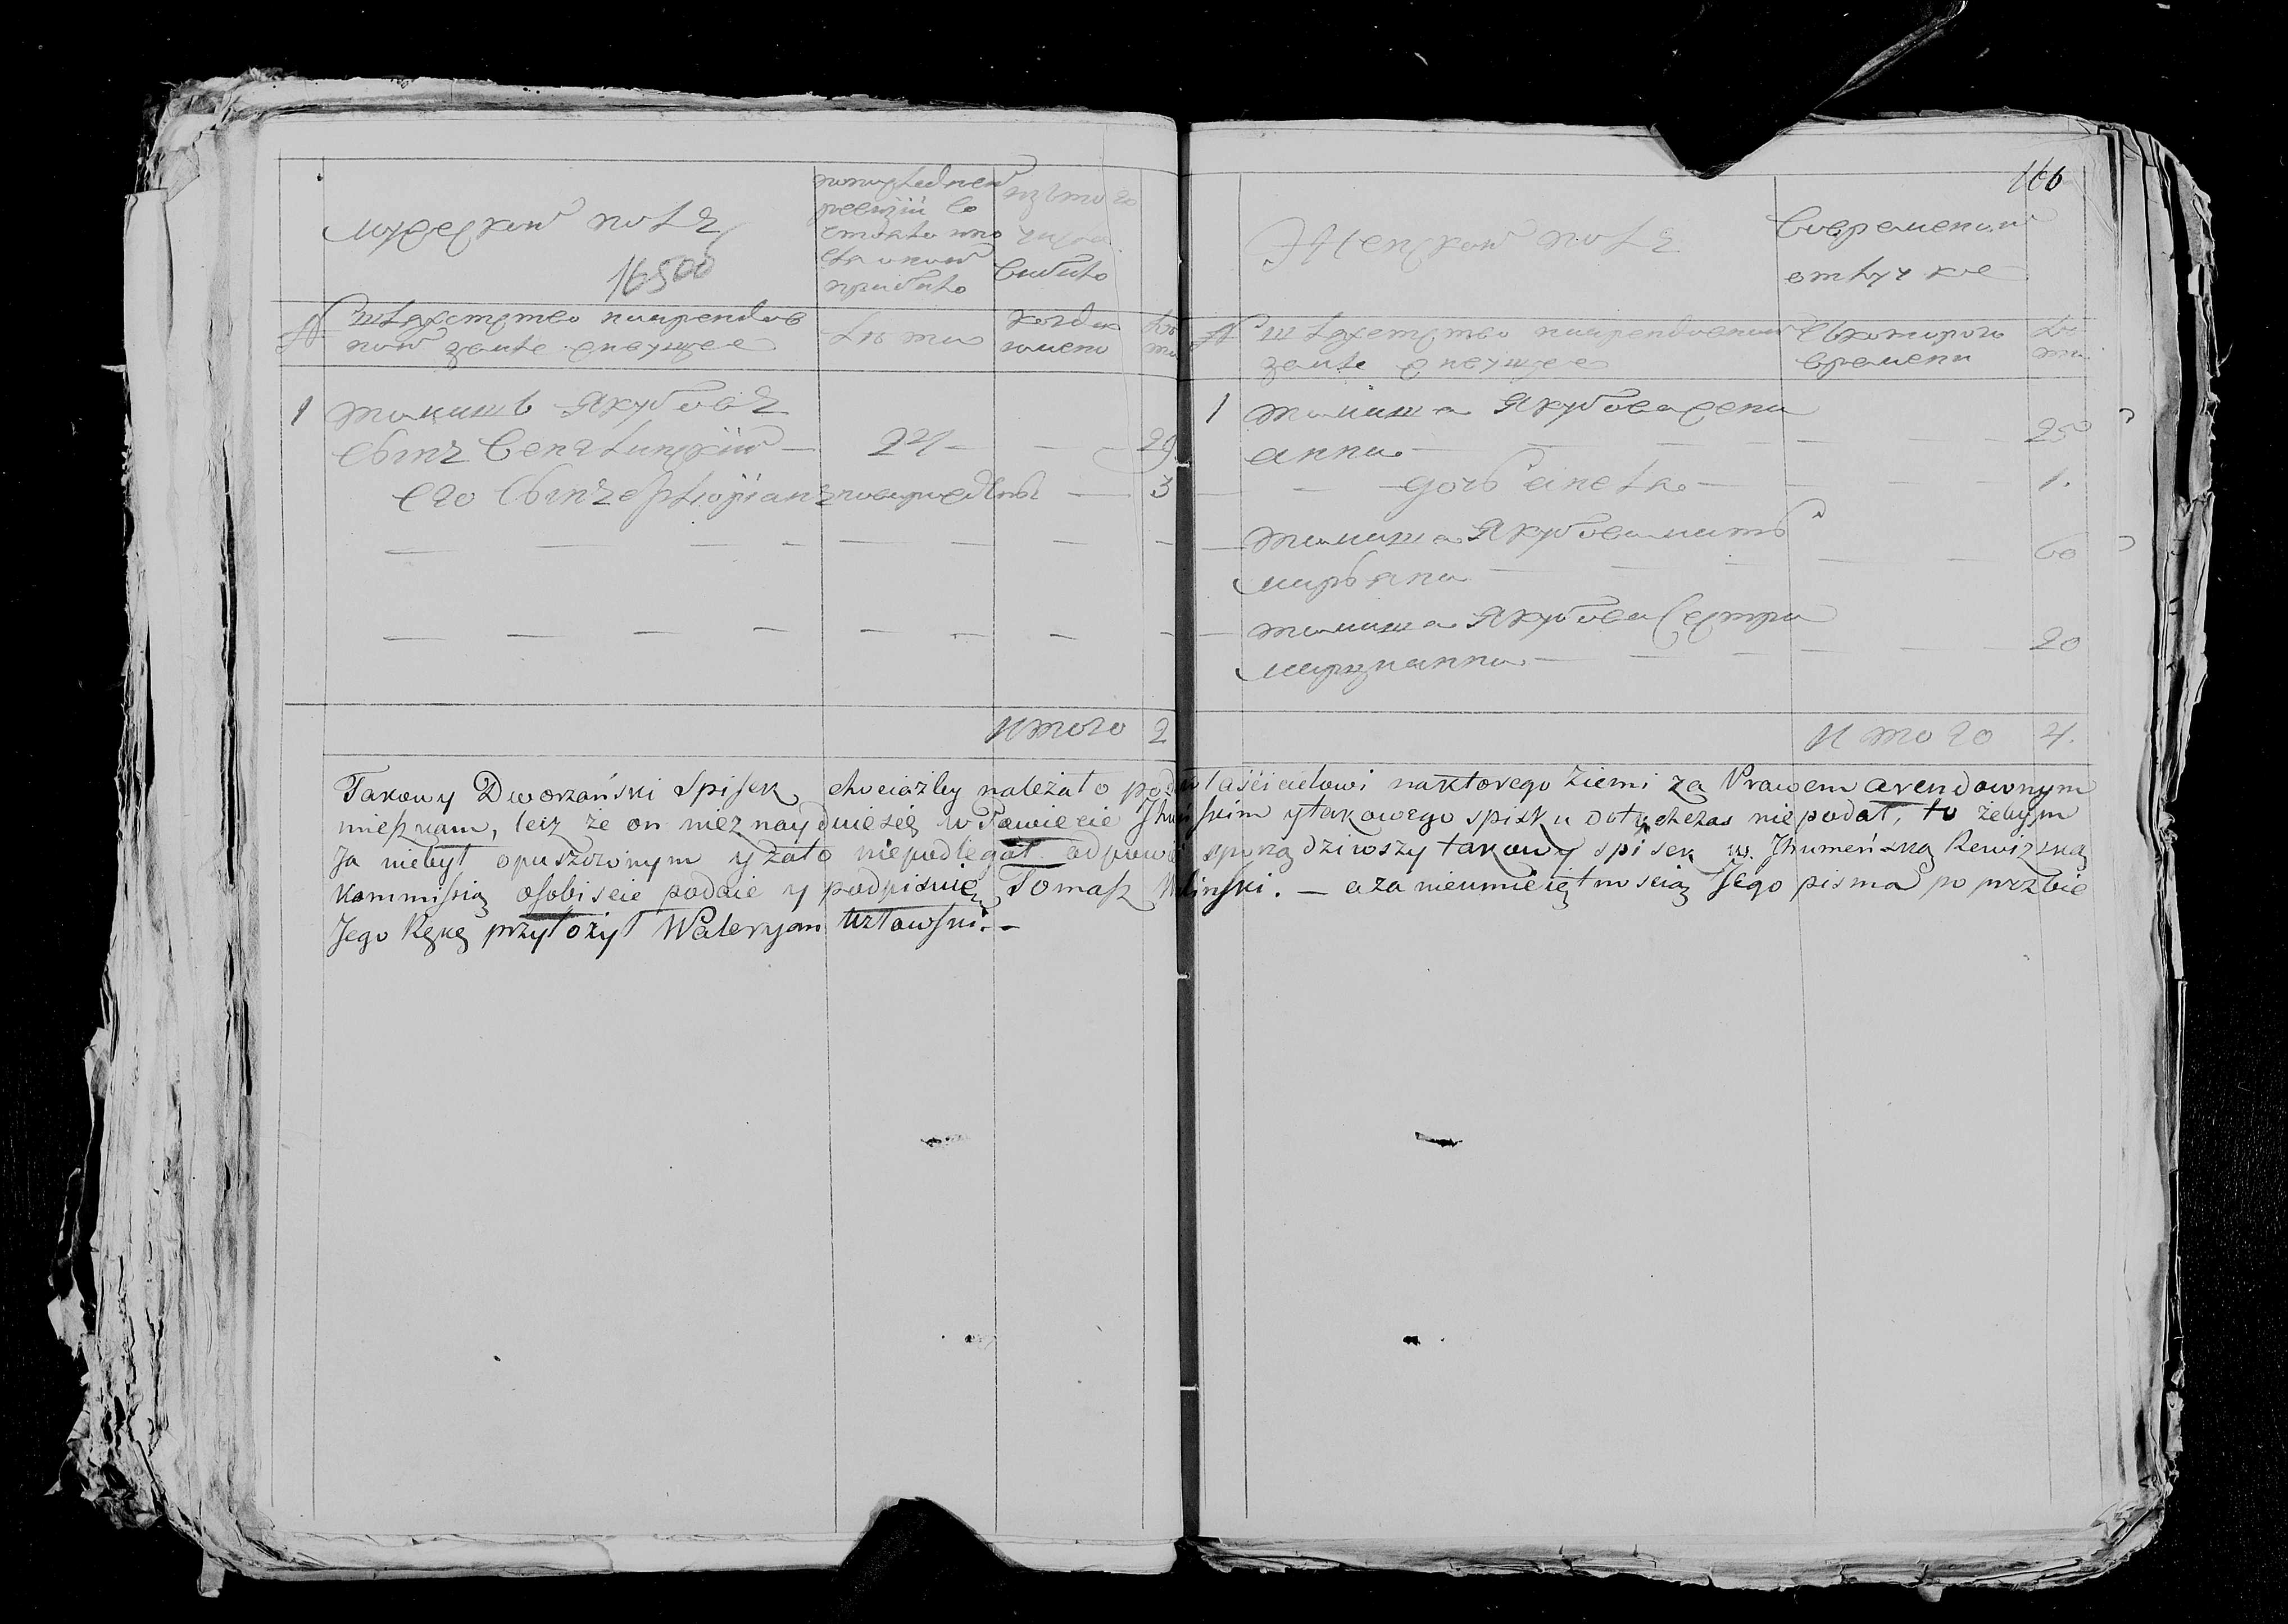 166
мужеской полъ
16500
по последней
ревизіи со
стояло и по
слѣ оной
прибыло
изъ того
числа
выбыло
№
шляхетство на арендов
ной земле живущее
лѣта
когда
имено
лѣ
та
1
Томашъ Якубовъ
сынъ
24
29
его сынъ Флоріанъ новорожденъ
3
Итого 2
Женской полъ
во временной
отлучке
№
шляхетство на арендовной
земле живущее
съ которого
времени
лѣ
та
1
Томаша Якубова жена
Анна
25
дочь Анеля
1.
Томаша Якубова мать
Марьяна
60
Томаша Якубова сестра
Марцианна
20
Итого 4.
Takowy Dworzański Spisek chociażby należało podać właścicielowi na którego ziemi za Prawem arendownym
mieszkam, lecz że on nieznayduie się w Powiecie Ihumeńskim y takowego spisku dotychczas niepodał, to żebym
Ja niebył opuszczonym y zato niepodlegał odpowiedzi sporządziwszy takowy spisek w Ihumeńską Rewizską
Kommissią osobiscie podaie y podpisuię Tomasz Wiliński. — a za nieumieiętnoscią Jego pisma po przzbie
Jego Rękę przyłożył Waleryan Uzłowski. —